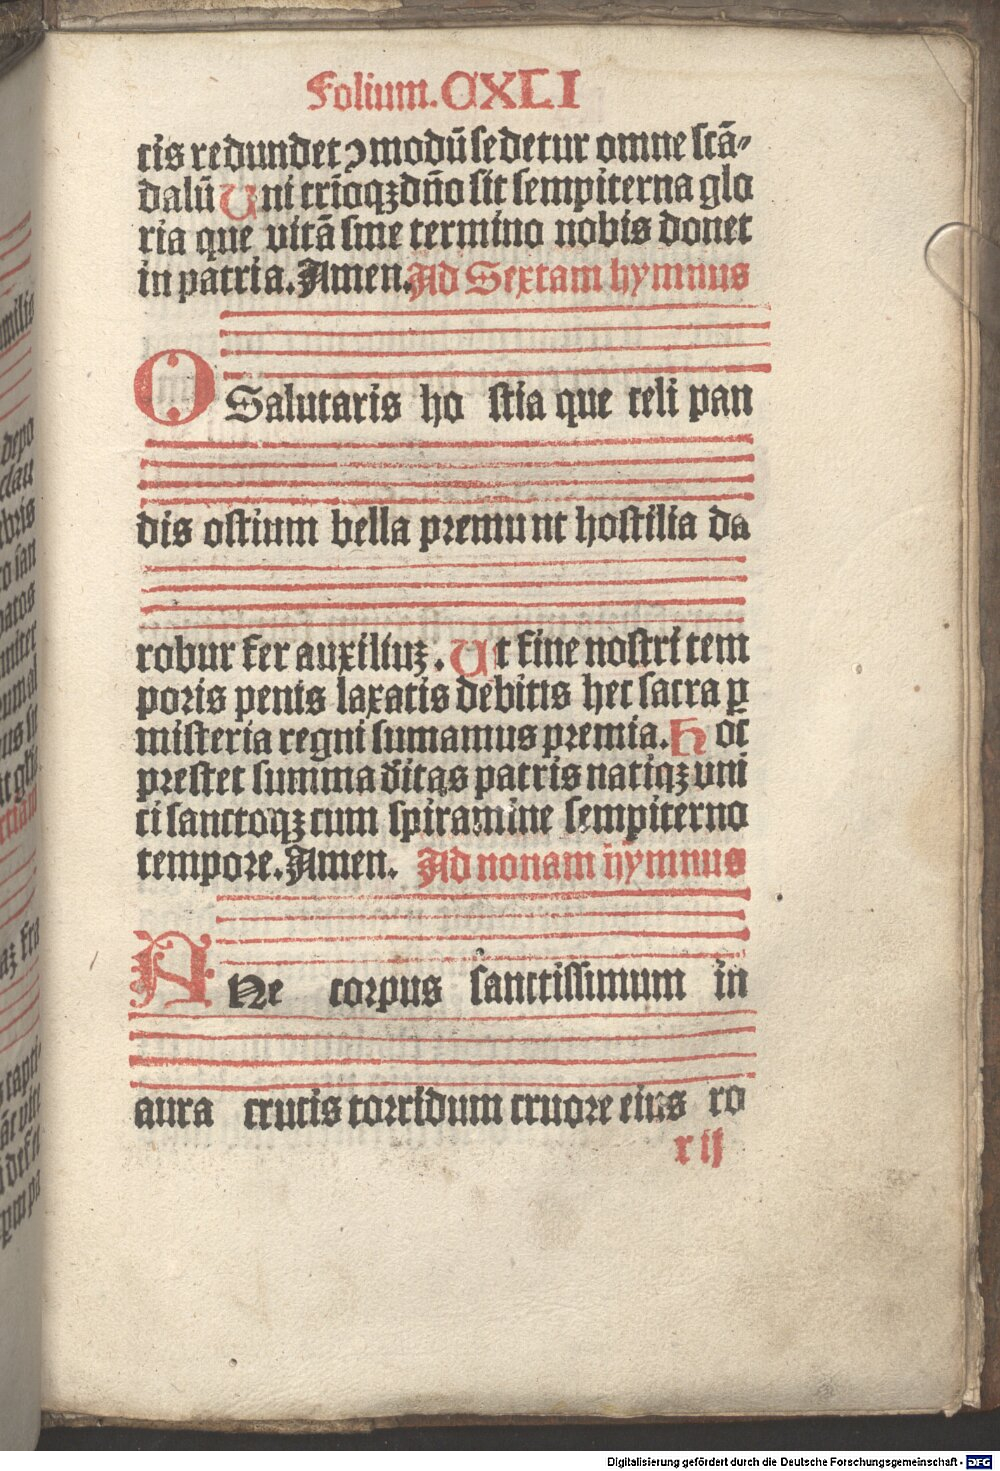 Folium. CXLI
cis redundet ꝯmodū sedetur omne scā⸗
dalū Uni trīoqꝫ dño sit sempiterna glo
ria que vitā sine termino nobis donet
in patria. Amen. Ad Sextam hymnus
O Salutaris ho stia que celi pan
dis ostium bella premunt hostilia da
robur fer auxiliuꝫ. Ut fine nostri tem
poris penis laxatis debitis hec sacra ꝑ
misteria regni sumamus premia. Hoc
prestet summa ditas patris natiqꝫ vni
ci sanctoqꝫ cum spiramine sempiterno
tempore. Amen. Ad nonam hymnus
A Ne corpus sanctissimum in
aura crucis torridum cruore eius ro
r ij
Digitalisierung gefördert durch die Deutsche Forschungsgemeinschaft - DFG